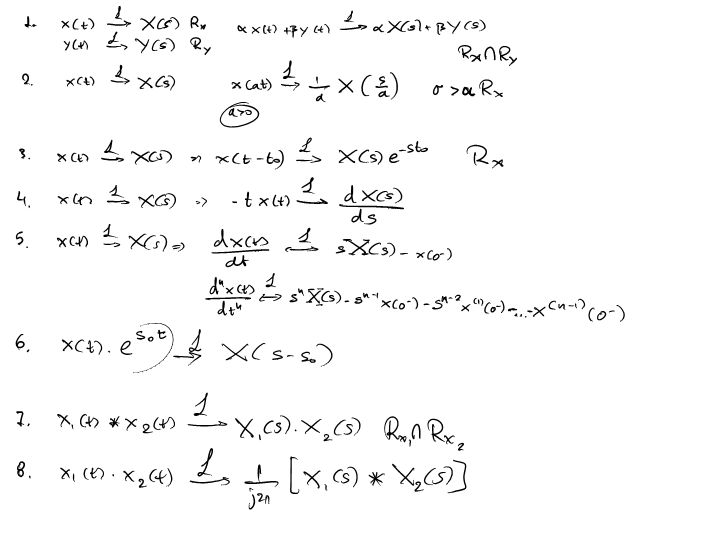 1. x(t) ℒ→ X(s) Rx   αx(t)+βy(t) ℒ→ αX(s)+βY(s)
y(t) ℒ→ Y(s) Ry   Rx∩Ry
2. x(t) ℒ→ X(s)   x(at) ℒ→ 1/a X(s/a)   σ>αRx
a>0
3. x(t) ℒ→ X(s) ⇒ x(t-t₀) ℒ→ X(s)e^{-st₀}   Rx
4. x(t) ℒ→ X(s) ⇒ -tx(t) ℒ→ dX(s)/ds
5. x(t) ℒ→ X(s) ⇒ dx(t)/dt ℒ↔ sX(s)-x(0⁻)
dⁿx(t)/dtⁿ ℒ↔ sⁿX(s)-s^{n-1}x(0⁻)-s^{n-2}x^{(1)}(0⁻)-...-x^{(n-1)}(0⁻)
6. x(t).e^{s₀t} ℒ→ X(s-s₀)
7. x₁(t)*x₂(t) ℒ→ X₁(s).X₂(s)   Rx₁∩Rx₂
8. x₁(t).x₂(t) ℒ→ 1/j2π [X₁(s)*X₂(s)]